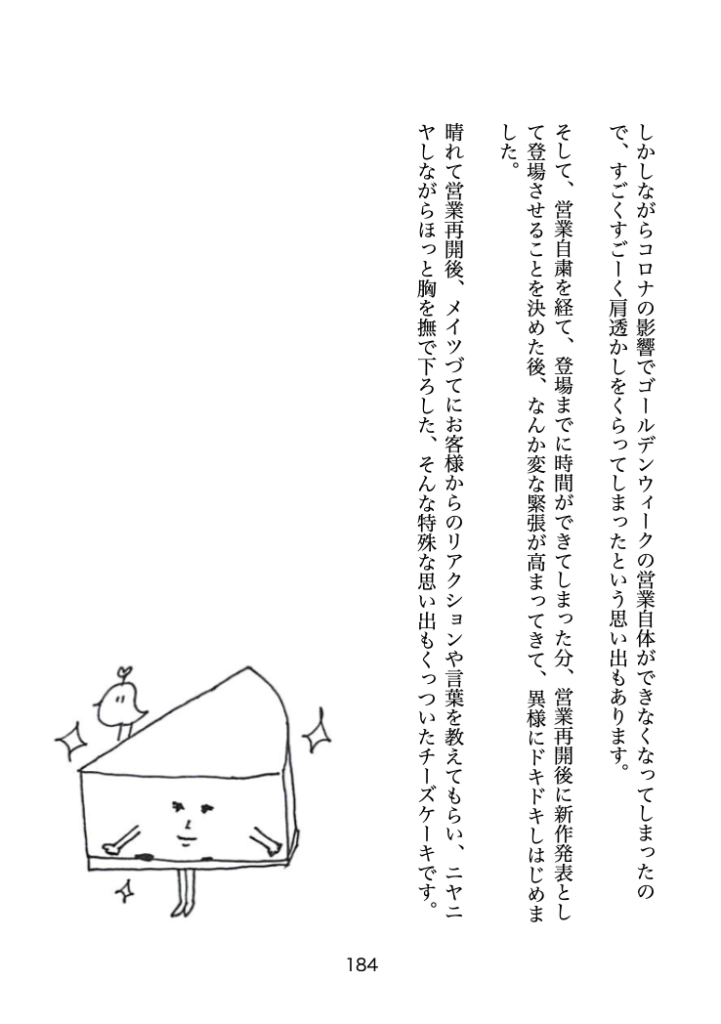 しかしながらコロナの影響でゴールデンウィークの営業自体ができなくなってしまったの
で、すごくすごーく肩透かしをくらってしまったという思い出もあります。
そして、営業自粛を経て、登場までに時間ができてしまった分、営業再開後に新作発表とし
て登場させることを決めた後、なんか変な緊張が高まってきて、異様にドキドキしはじめま
した。
晴れて営業再開後、メイツづてにお客様からのリアクションや言葉を教えてもらい、ニヤニ
ヤしながらほっと胸を撫で下ろした、そんな特殊な思い出もくっついたチーズケーキです。
184